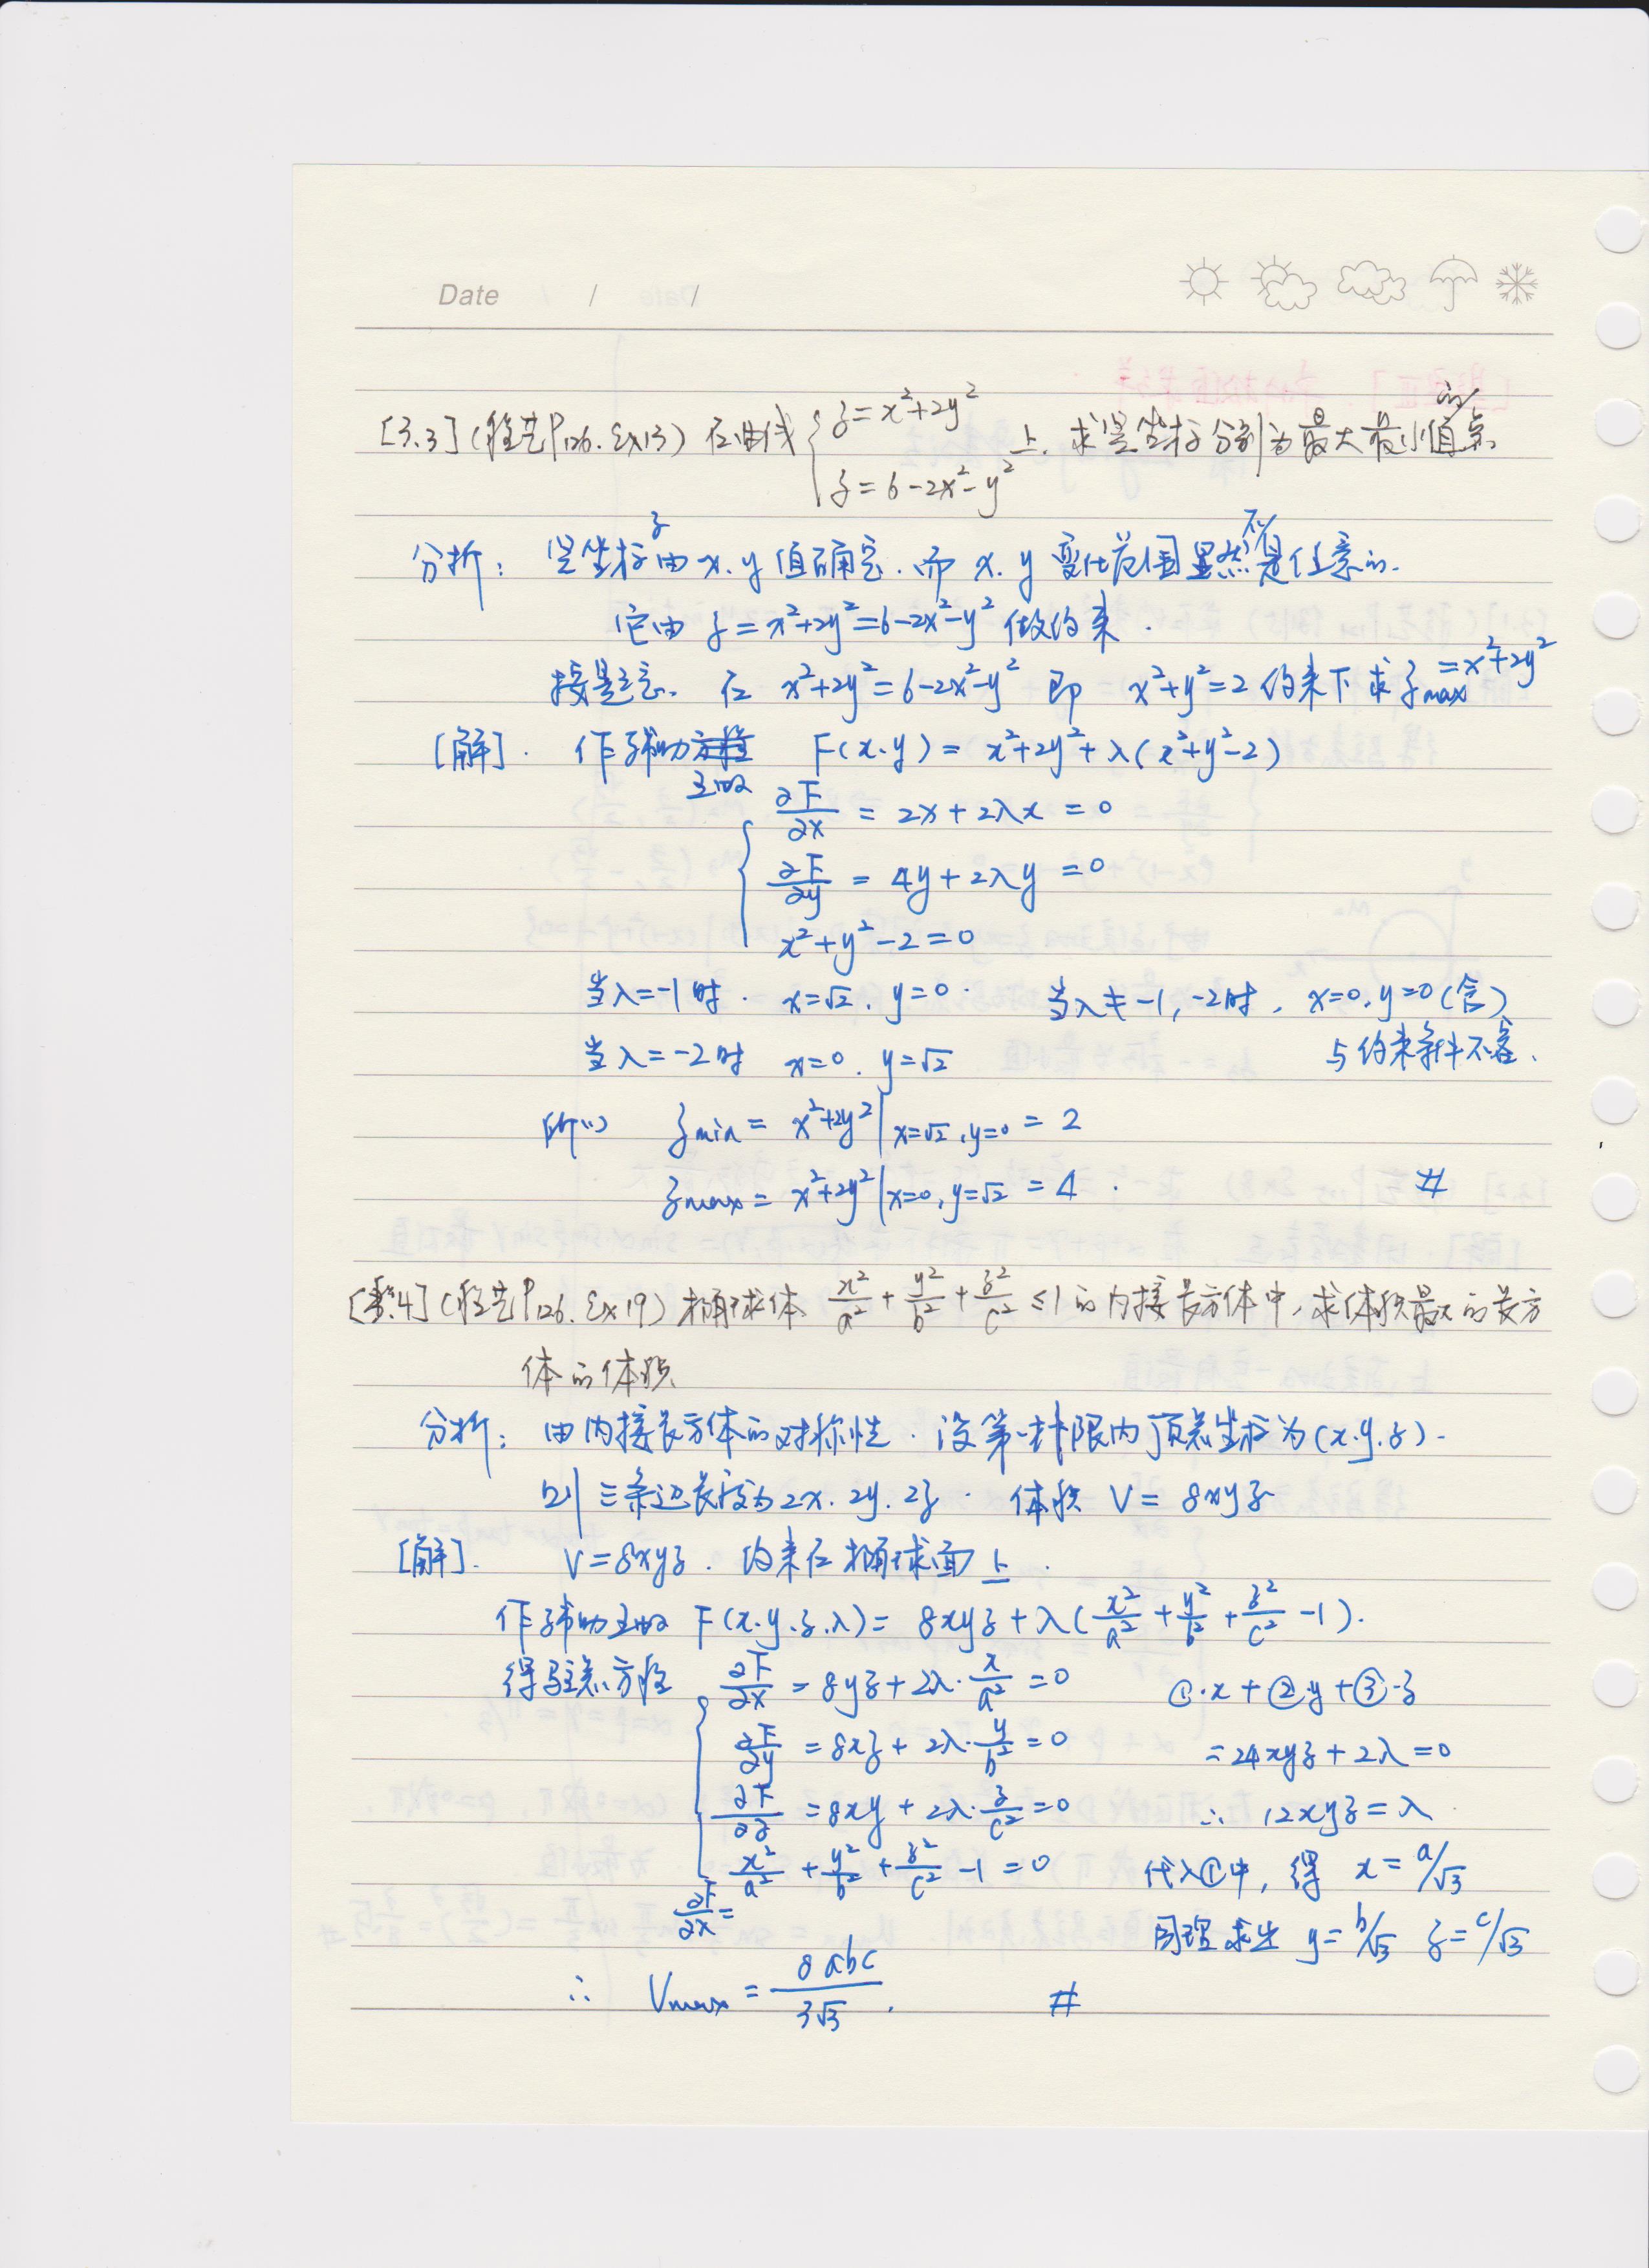 Date / /
[3.3] (程艺P126. Ex13) 在曲线 { z = x²+2y² , z = 6-2x²-y² 上, 求竖坐标分别为最大最小值的点.
分析: 竖坐标z由x.y值确定. 而x.y变化范围显然不是任意的.
它由 z = x²+2y² = 6-2x²-y² 做约束.
按题意. 在 x²+2y² = 6-2x²-y² 即 x²+y²=2 约束下求 zmax = x²+2y²
[解]. 作辅助 F(x.y) = x²+2y²+λ(x²+y²-2)
∂F/∂x = 2x+2λx = 0
∂F/∂y = 4y+2λy = 0
x²+y²-2=0
当λ=-1时. x=√2. y=0. 当λ≠-1, -2时. x=0. y=0 (舍)
当λ=-2时 x=0. y=√2 与约束条件不容.
所以 zmin = x²+2y²|x=√2, y=0 = 2
zmax = x²+2y²|x=0, y=√2 = 4. #
[3.4] (程艺P126. Ex19) 椭球体 x²/a² + y²/b² + z²/c² ≤ 1 的内接长方体中, 求体积最大的长方
体的体积
分析: 由内接长方体的对称性. 设第一卦限内顶点坐标为(x.y.z).
则三条边长度为2x. 2y. 2z. 体积 V = 8xyz
[解]. V = 8xyz. 约束在椭球面上.
作辅助 F(x.y.z.λ) = 8xyz + λ(x²/a² + y²/b² + z²/c² - 1).
得驻点方程 ∂F/∂x = 8yz + 2λ·x/a² = 0 ①·x + ②y + ③·z
∂F/∂y = 8xz + 2λ·y/b² = 0 = 24xyz + 2λ = 0
∂F/∂z = 8xy + 2λ·z/c² = 0 ∴ 12xyz = λ
x²/a² + y²/b² + z²/c² - 1 = 0 代入①中, 得 x = a/√3
∂F/∂x = 同理求出 y = b/√3 z = c/√3
∴ Vmax = 8abc/3√3. #